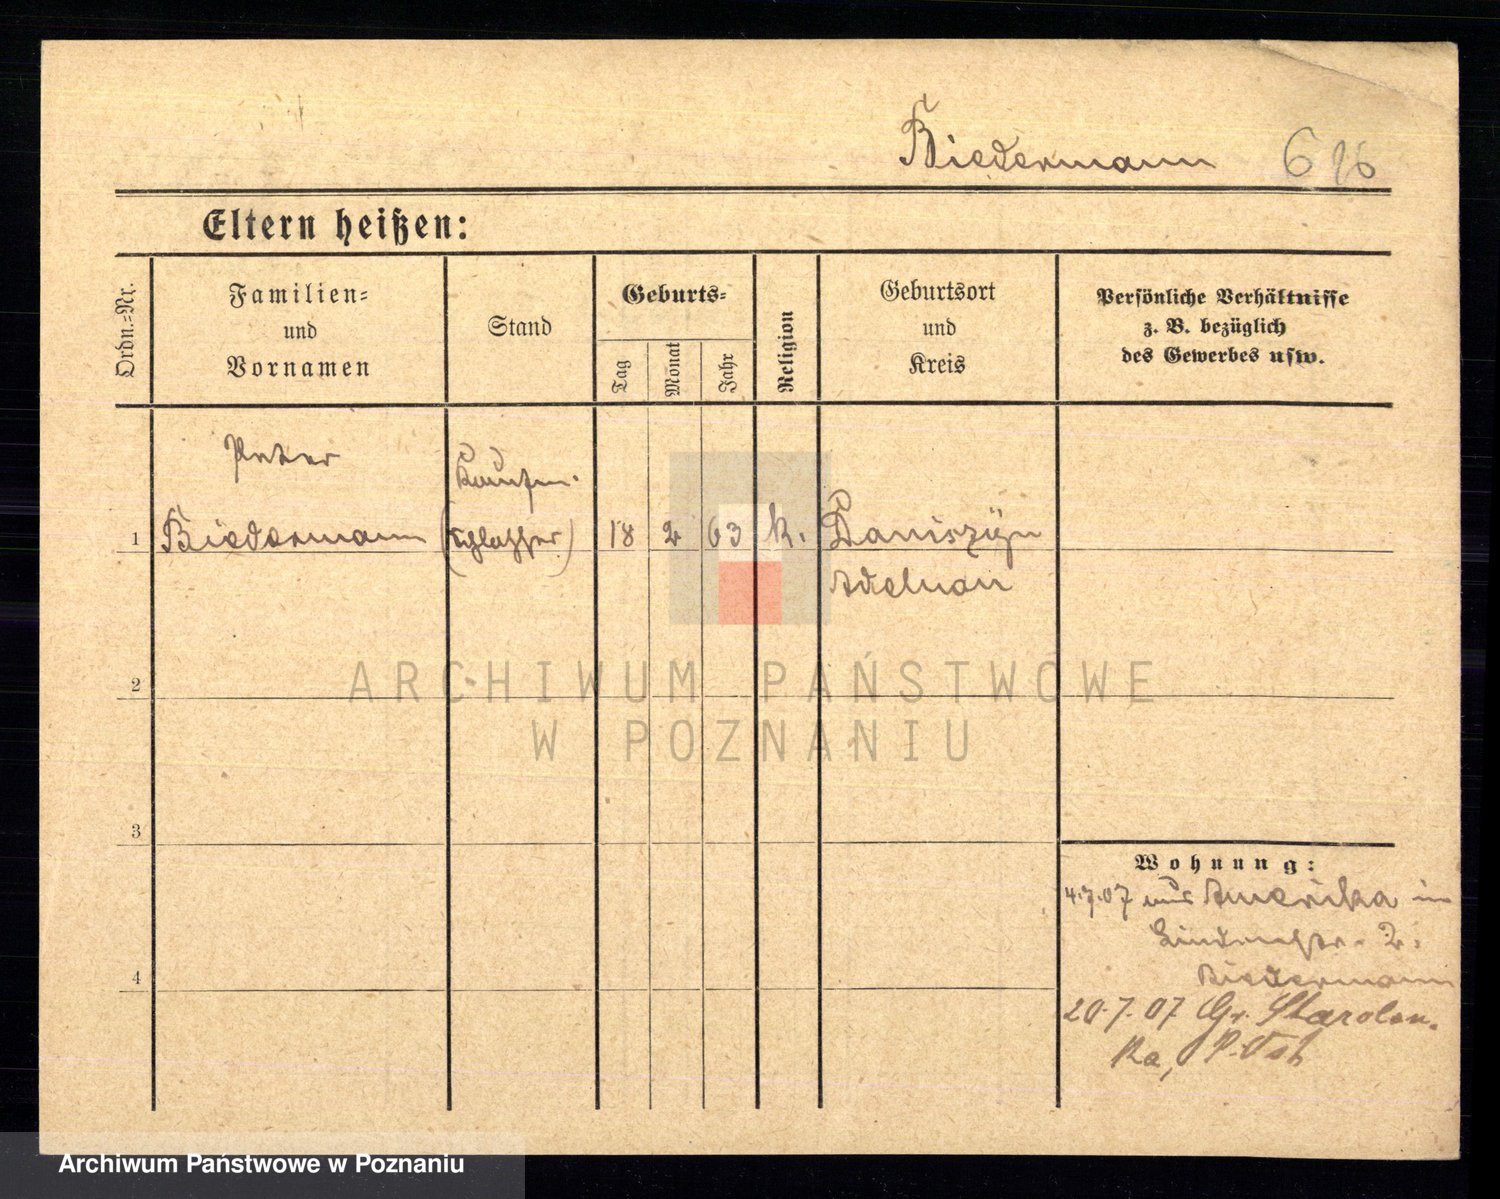 Biedermann 696
Eltern heißen:
Ordn.-Nr.
Familien-
und
Vornamen
Stand
Geburts-
Tag
Monat
Jahr
Religion
Geburtsort
und
Kreis
Persönliche Verhältnisse
z. B. bezüglich
des Gewerbes usw.
Peter
Kaufm.
1 Biedermann (Schlosser) 18 2 63 k. Daniszyn
Adelnau
ARCHIWUM PAŃSTWOWE
W POZNANIU
2
3
4
Wohnung:
4.7.07 aus Amerika in
2.
Biedermann
20.7.07 Gr. Starolen-
ka, P. Ost
Archiwum Państwowe w Poznaniu